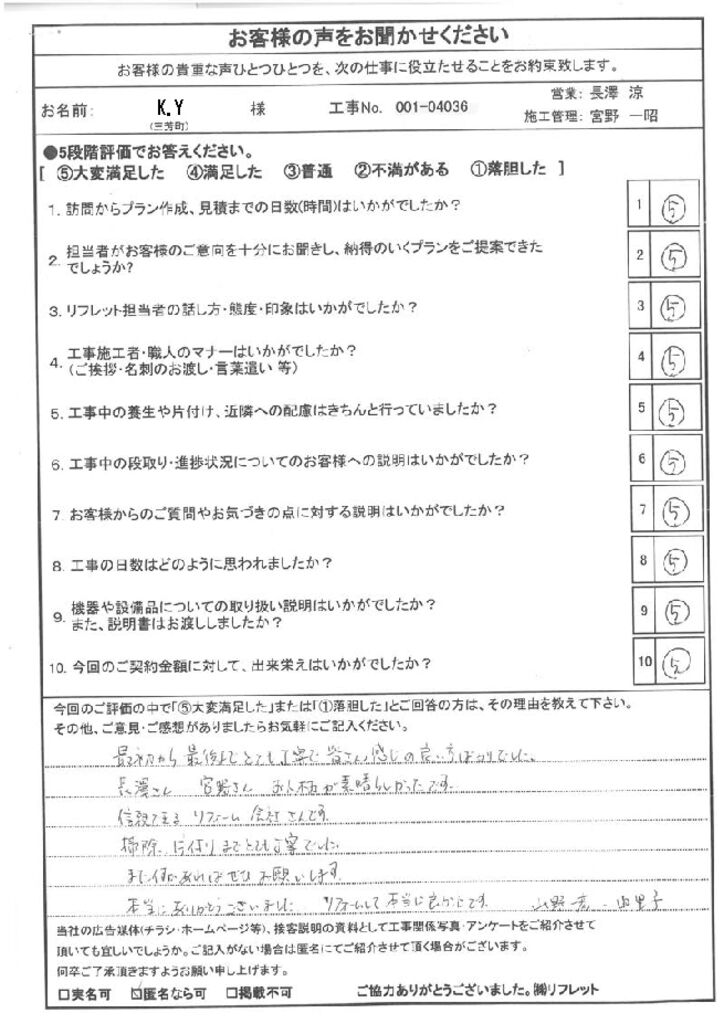 お客様の声をお聞かせください
お客様の貴重な声ひとつひとつを、次の仕事に役立たせることをお約束致します。
お名前: K.Y 様 工事No. 001-04036
(三芳町)
営業: 長澤 涼
施工管理: 宮野 一昭
●5段階評価でお答えください。
[ ⑤大変満足した ④満足した ③普通 ②不満がある ①落胆した ]
1. 訪問からプラン作成、見積までの日数(時間)はいかがでしたか？ 1 ⑤
2. 担当者がお客様のご意向を十分にお聞きし、納得のいくプランをご提案できた
でしょうか? 2 ⑤
3. リフレット担当者の話し方・態度・印象はいかがでしたか？ 3 ⑤
4. 工事施工者・職人のマナーはいかがでしたか？
(ご挨拶・名刺のお渡し・言葉遣い 等) 4 ⑤
5. 工事中の養生や片付け、近隣への配慮はきちんと行っていましたか？ 5 ⑤
6. 工事中の段取り・進捗状況についてのお客様への説明はいかがでしたか？ 6 ⑤
7. お客様からのご質問やお気づきの点に対する説明はいかがでしたか？ 7 ⑤
8. 工事の日数はどのように思われましたか？ 8 ⑤
9. 機器や設備品についての取り扱い説明はいかがでしたか？
また、説明書はお渡ししましたか？ 9 ⑤
10. 今回のご契約金額に対して、出来栄えはいかがでしたか？ 10 ⑤
今回のご評価の中で「⑤大変満足した」または「①落胆した」とご回答の方は、その理由を教えて下さい。
その他、ご意見・ご感想がありましたらお気軽にご記入ください。
最初から 最後までとても丁寧で 皆さん感じの良い方ばかりでした。
長澤さん 宮野さん お人柄が素晴らしかったです。
信頼できる リフォーム 会社さんです。
掃除、片付けまでとても丁寧でした。
また何かあればぜひお願いします。
本当にありがとうございました リフォームして本当に良かったです。
当社の広告媒体(チラシ・ホームページ等)、接客説明の資料として工事関係写真・アンケートをご紹介させて
頂いても宜しいでしょうか。ご記入がない場合は匿名にてご紹介させて頂く場合がございます。
何卒ご了承頂きますようお願い申し上げます。
□実名可 ☑匿名なら可 □掲載不可 ご協力ありがとうございました。㈱リフレット